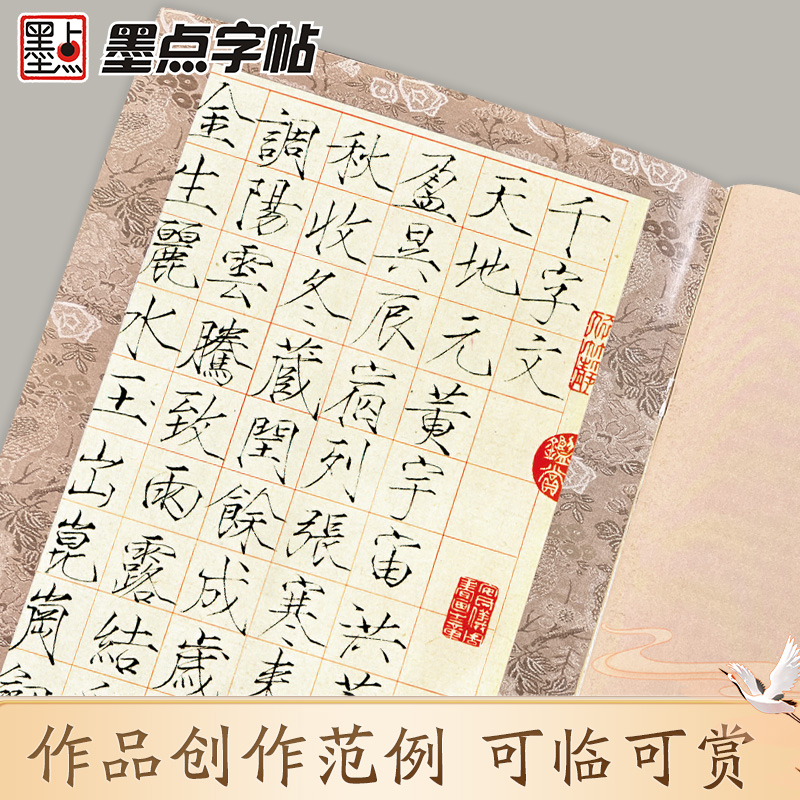 墨点
墨点字帖
千字文
天地元黃宇宙洪荒
盈昃辰宿列張寒来
秋收冬蔵閏餘成歲
調陽雲騰致雨露結
金生麗水玉出崑崗劍
鑑賞
作品创作范例 可临可赏